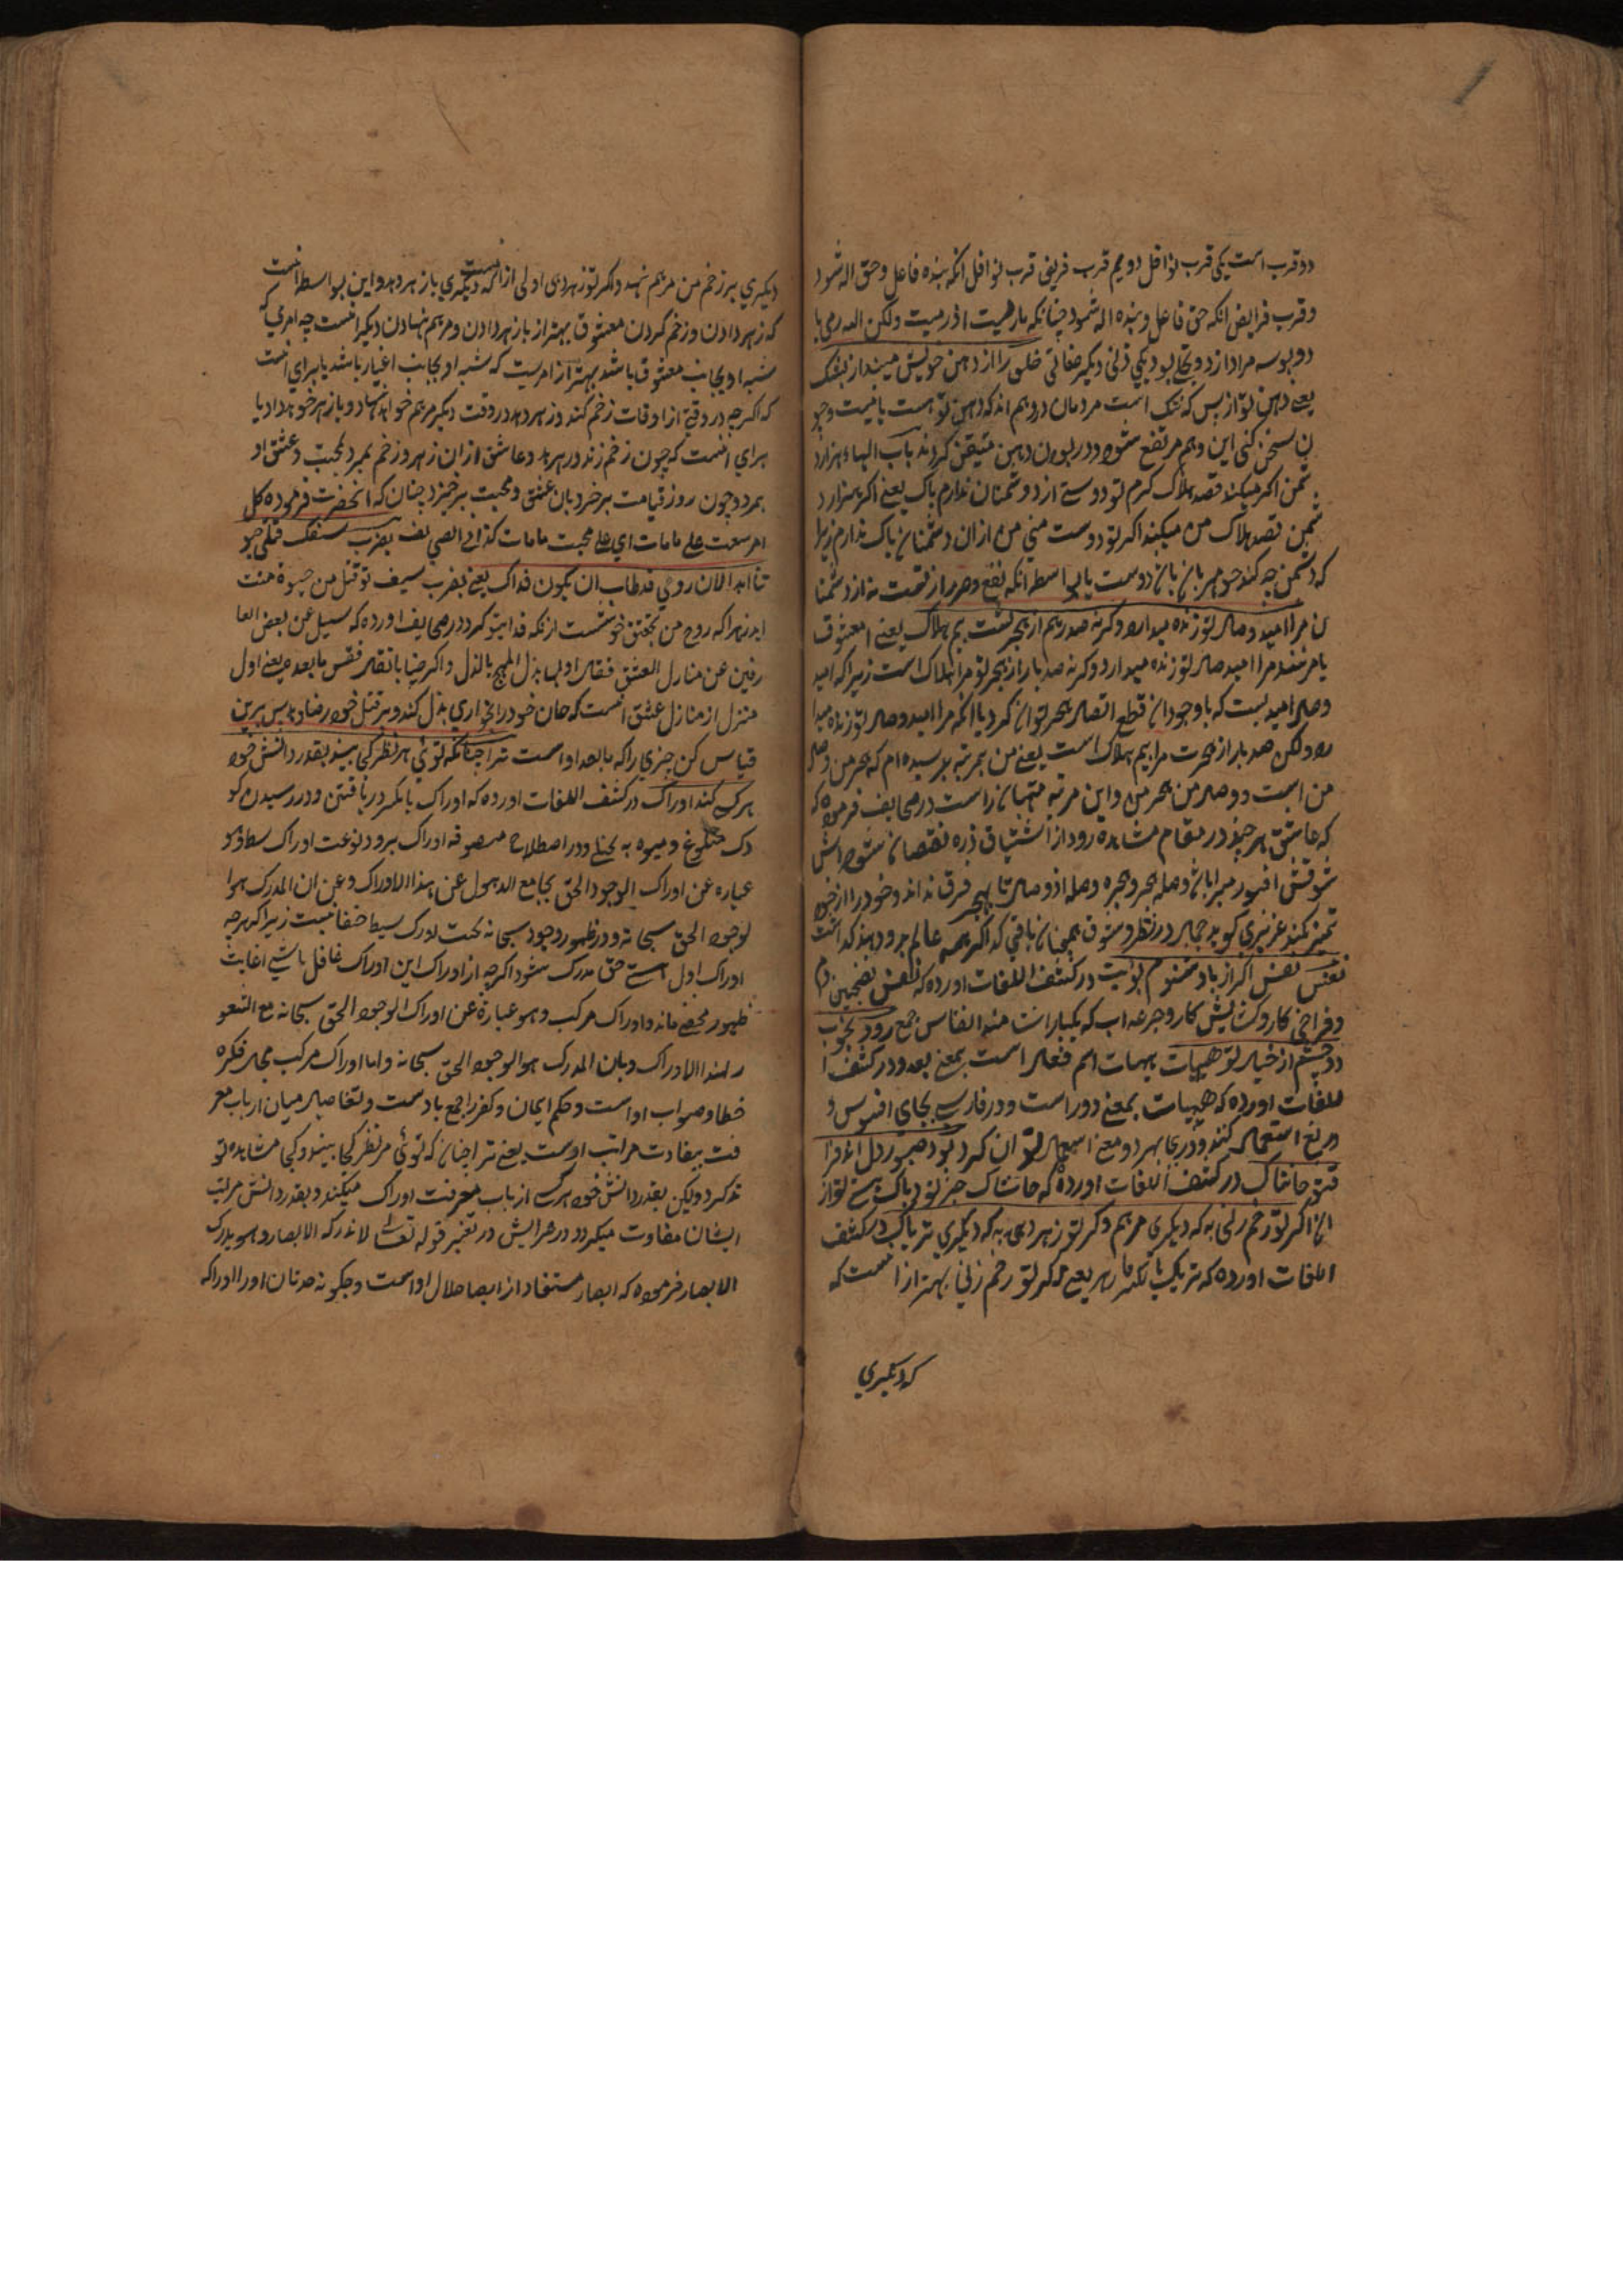 دو قرب است یکی قرب نوافل دویم قرب فریض قرب نوافل انکه بنده فاعل و حق اله شود
و قرب فرایض انکه حق فاعل و بنده اله شود چنانکه مارمیت اذ رمیت ولکن الله رمی با
دو بوسه مراد از دو تجلی بود یکی ذاتی دیکر صفاتی خلق را از دهن خویش میندار بشک
یعنی دهن تو از بس که تنک است مردمان در وهم اند که دهن تو هست یا نیست و چو
ن سخن کنی این وهم مرتفع شود و در بودن دهن متیقن کردند باب الهاء هزار د
شمن اکر میکند قصد هلاک کرم تو دوستی از دوشمنان ندارم باک یعنی اکر هزار د
شمن قصد هلاک من میکند اکر تو دوست منی من از ان دشمنان باک ندارم زیرا
که دشمن چه کند چو مهربان باشد دوست یا بواسطه انکه نفع و ضرر از تست نه از دشمنا
ن مرا امید وصال تو زنده میدارد و کرنه صد رهم از هجر تست بیم هلاک یعنی ای معشوق
یا مرشد مرا امید وصال تو زنده میدارد و کرنه صد بار از هجر تو مرا هلاک است زیرا که امید
وصل امید بست که با وجود ان قطع اتصال هجر توان کرد یا انکه مرا امید وصال تو زنده میدا
رد ولکن صد بار از هجرت مرا بیم هلاک است یعنی من بمرتبه رسیده ام که هجر من وصل
من است و وصل من هجر من و این مرتبه منتهیان راست در صحایف فرموده که
که عاشق هر چند در مقام مشاهده رود از اشتیاق ذره نقصان نشود اتش
شوقش افروز
تمیز نکند عزیزی کوید جمال در نظر و شوق همچنان باقی کدا اکر همه عالم بدو دهند کداست
نفس نفس اکر از باد نشنوم بویت در کشف اللغات اورده که نفس بفتحتین دم
و فراخی کار و کشایش کار و جرعه اب که یکبار است منه انفاس جمع رود بخواب
دو چشم از خیال تو هیهات هیهات اسم فعل است بمعنی بعد و در کشف ا
للغات اورده که هیهات بمعنی دور است و در فارسی بجای افسوس و
دریغ استعمال کنند و در ی هر دو معنی استعمال توان کرد بود صبور دل اندر فرا
ق تو حاشاک در کشف اللغات اورده که حاشاک جز تو و پاکی تو از
ان اکر تو زخم زنی به که دیکری مرهم و کر تو زهر دهی به که دیکری تریاک در کشف
اللغات اورده که تریاک بالکسر پازهر یعنی اکر تو زخم زنی بهتر از انست که
که دیکری
دیکری بر زخم من مرهم نهد و اکر تو زهر دهی اولی از انست که دیکری پازهر دهد و این بواسطه انست
که زهر دادن و زخم کردن معشوق بهتر از پازهر دادن و مرهم نهادن دیکر انست چه امری که
نسبه او بجانب معشوق باشد بهتر از امریست که نسبه او بجانب اغیار باشد یا برای انست
که اکرچه در وقتی از اوقات زخم کند و زهر دهد در وقت دیکر مرهم خواهد نهاد و پازهر خواهد داد یا
برای انست که چون زخم زند و زهر دهد و عاشق از ان زهر و زخم بمیرد بمحبت و عشق او
بمرد و چون روز قیامت برخیزد بان عشق و محبت برخیزد چنان که انحضرت فرموده کل
امر یبعث علی مامات ای علی محبت مامات کذا فی الصحایف بضرب سیفک قتلی حیو
تنا ابدا لان روحی قد طاب ان یکون فداک یعنی بضرب سیف تو قتل من حیوة منست
ابد زیرا که روح من بتحقیق خوشست از انکه فداء تو کردد در صحایف اورده که سئل عن بعض العا
رفین عن منازل العشق فقال اولها بذل المهج
منزل از منازل عشق انست که جان خود را بخواری بذل کند و بر قتل خود رضا دهد پس برین
قیاس کن چیزی را که مابعد اوست ترا چنانکه توئی هر نظر کجا بیند بقدر دانش خود
هر کس کند ادراک در کشف اللغات اورده که ادراک بالکسر دریافتن و در رسیدن کو
دک ببلوغ و میوه به پختکی و در اصطلاح متصوفه ادراک بر دو نوعست ادراک بسیط و هو
عباره عن ادراک الوجود الحق سبحانه مع الذهول عن هذا الادراک و عن ان المدرک هوا
لوجود الحق سبحانه و در ظهور وجود سبحانه بحسب ادراک بسیط خفا نیست زیرا که هرچه
ادراک اول هستی حق مدرک شود اکرچه از ادراک این ادراک غافل باشی از غایت
ظهور مخفی ماند و ادراک مرکب و هو عبارة عن ادراک الوجود الحق سبحانه مع الشعو
ر بهذا الادراک و بان المدرک هو الوجود الحق سبحانه و اما ادراک مرکب محل فکر و
خطا و صواب اوست و حکم ایمان و کفر راجع بادست و تفاضل میان ارباب معر
فت بتفاوت مراتب اوست یعنی ترا چنان که توئی هر نظر کجا بیند و کی مشاهده تو
تو کرد ولیکن بقدر دانش خود هر کس از باب معرفت ادراک میکند و بقدر دانش مراتب
ایشان متفاوت میکردد در عرایس در تفسیر قوله تعالی لا تدرکه الابصار و هو یدرک
الابصار فرموده که ابصار مستفاد از ابصار جلال اوست و چکونه حدثان او را ادراک